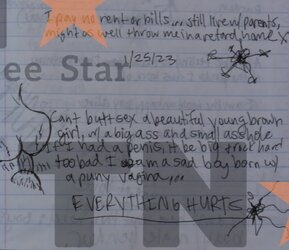 I pay no rent or bills... still live w/ parents,
might as well throw me in a retard home X
1/25/23
ee Star
Cant buttsex a beautiful young brown
girl, w/ a big ass and small asshole
If I had a penis, it be big truck hard
too bad I am a sad boy born w/
a puny vagina...
EVERYTHING HURTS
TN